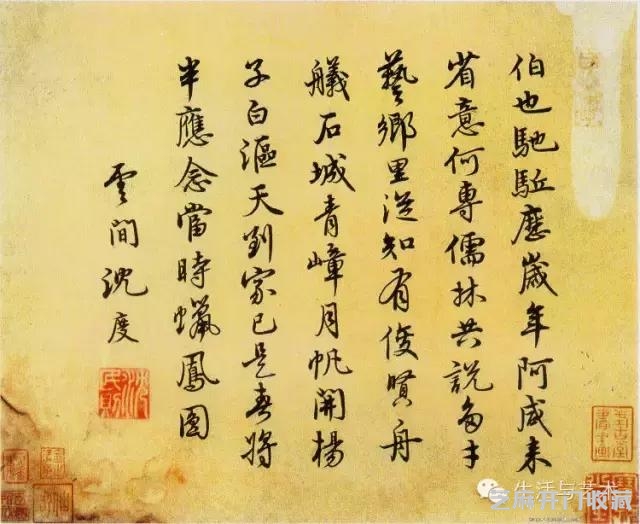 伯也馳駈歷歲年阿咸来
省意何專儒林共說多才
藝鄉里從知有俊賢舟
艤石城青嶂月帆開楊
子白漚天到家已是春將
半應念當時蠟鳳圓
雲間沈度
沈民則
生活与艺术
芝麻开门收藏